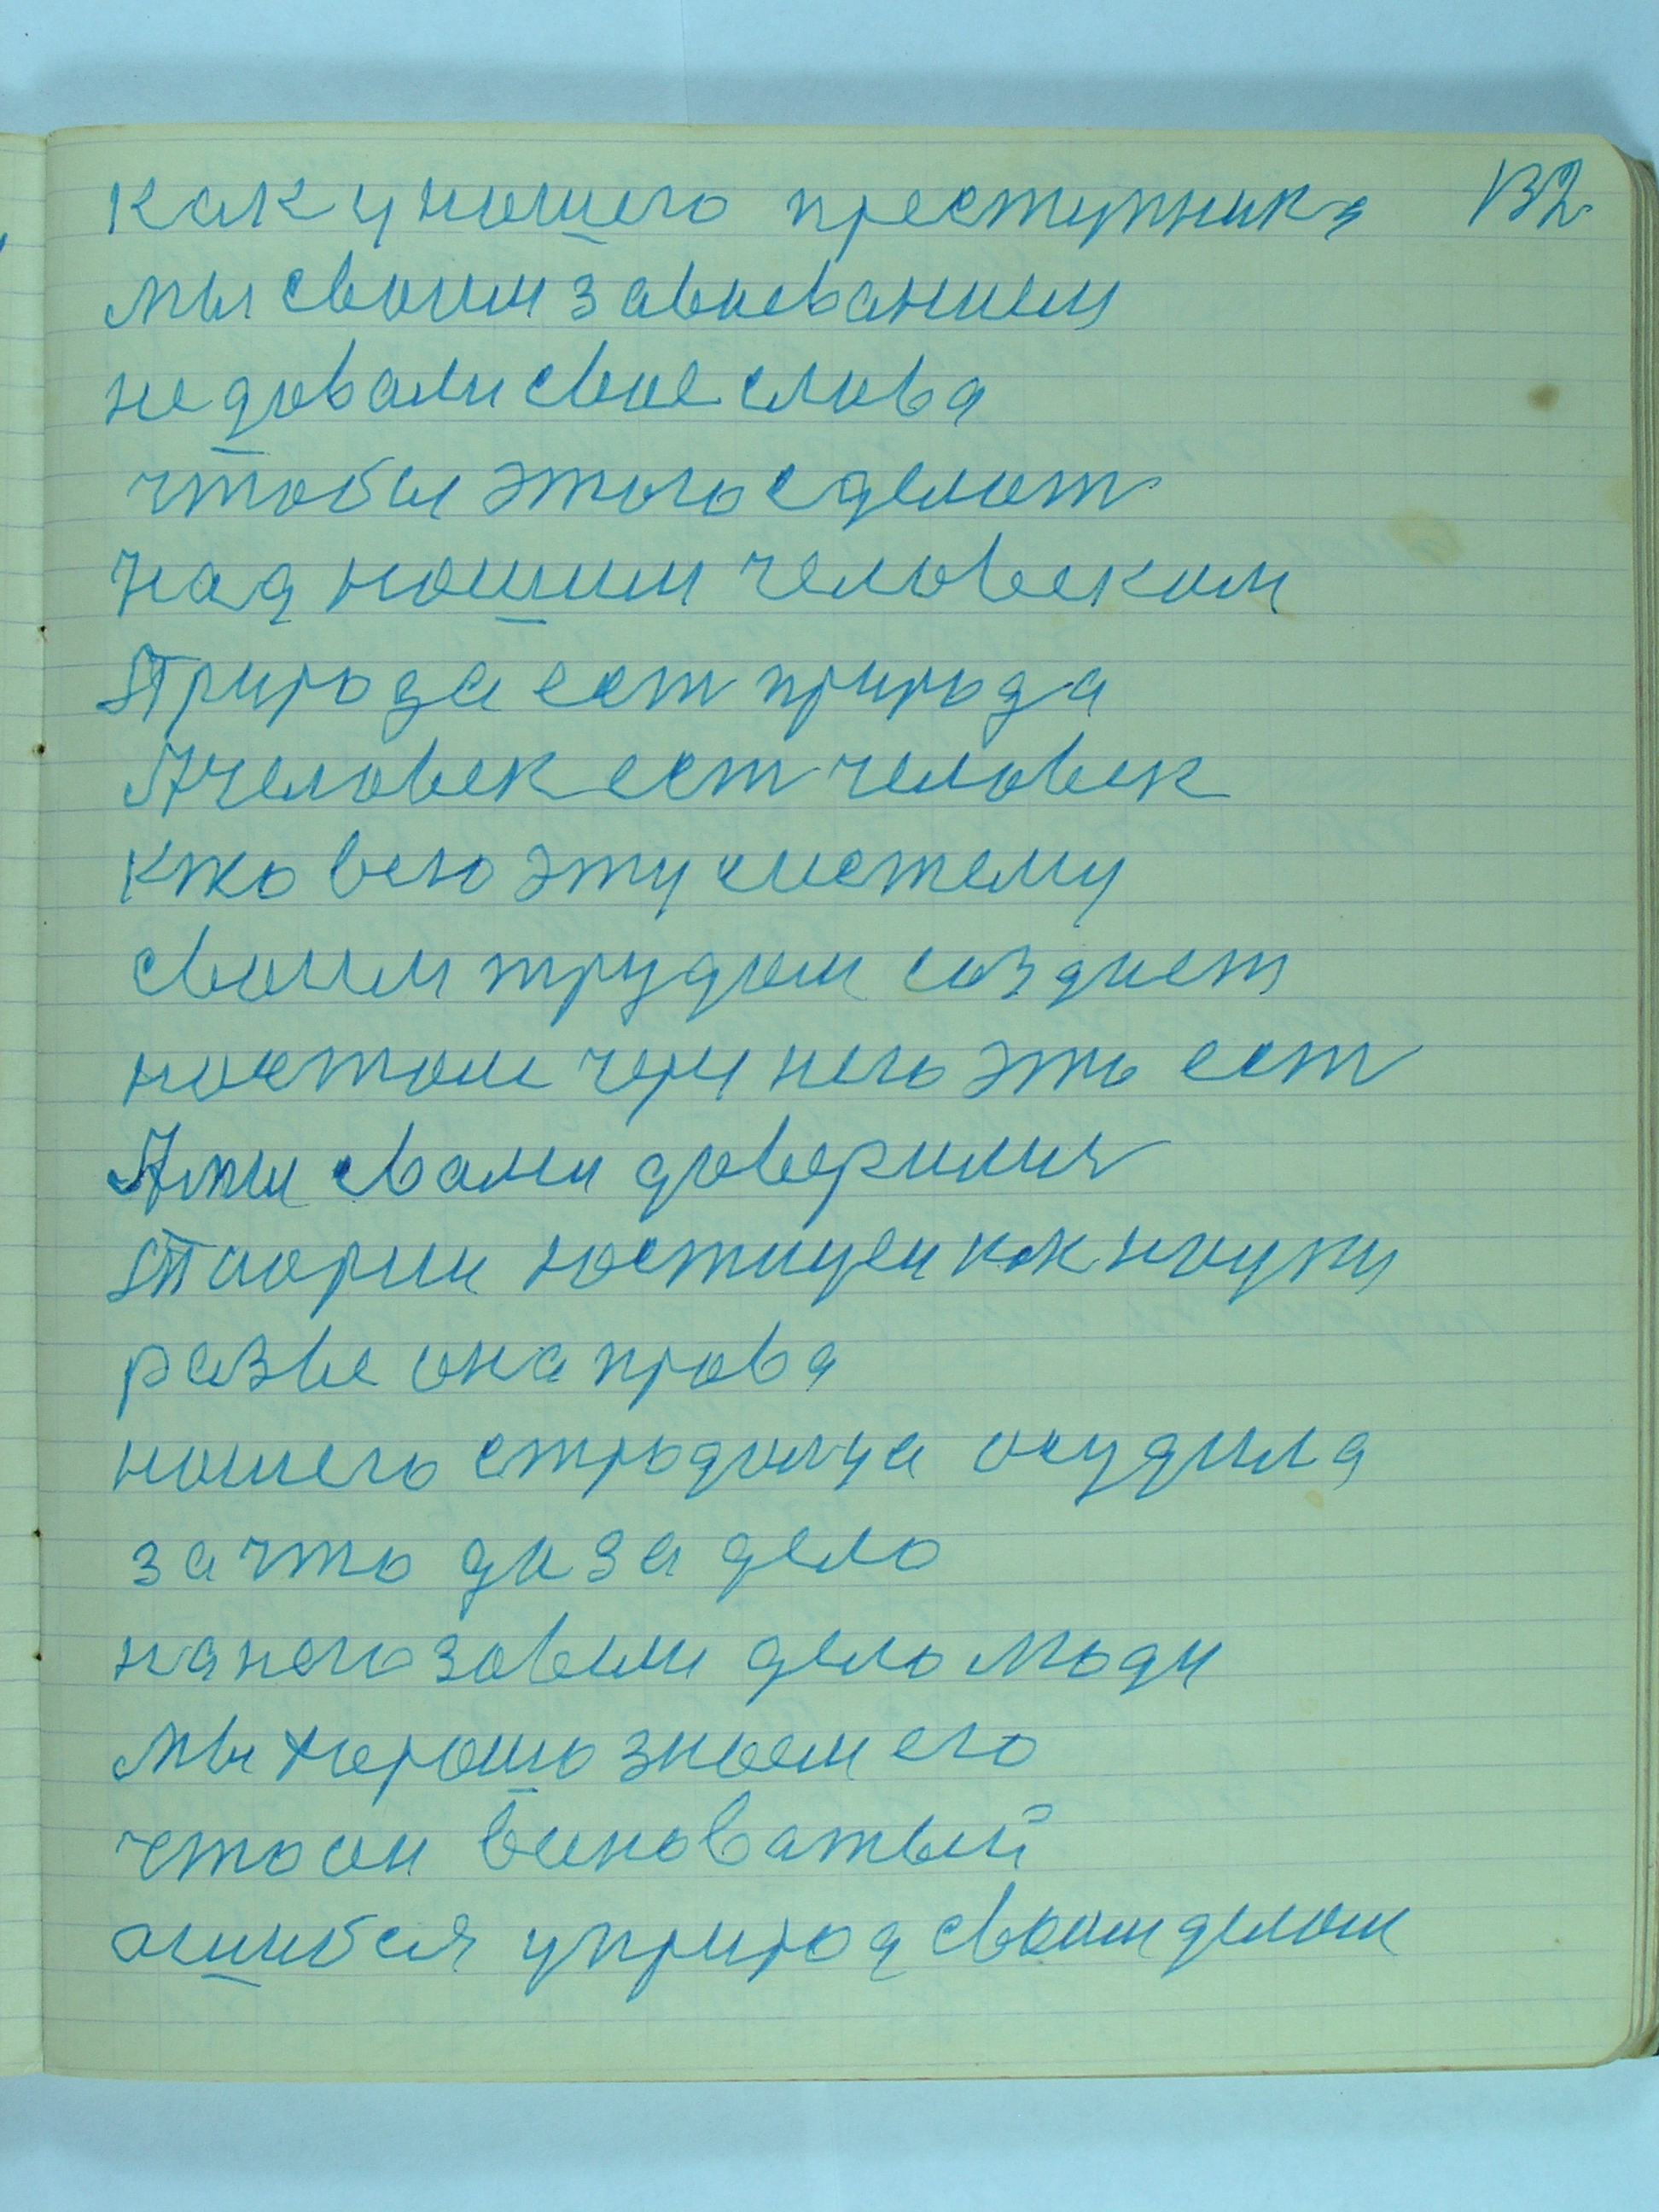 как у нашего преступника 132
мы своим завоеванием
не давали свое слова
чтобы этого сделат
над нашим человеком
Природа ест природа
А человек ест человек
кто всю эту систему
своим трудом создает
на этом чем него это ест
А мы с вами доверились
юстиции как науки
разве она права
нашего страдальца осудила
за что да за дело
на него завели дело люди
мы хорошо знаем его
что он виноватый
ошибся у природ своим делом